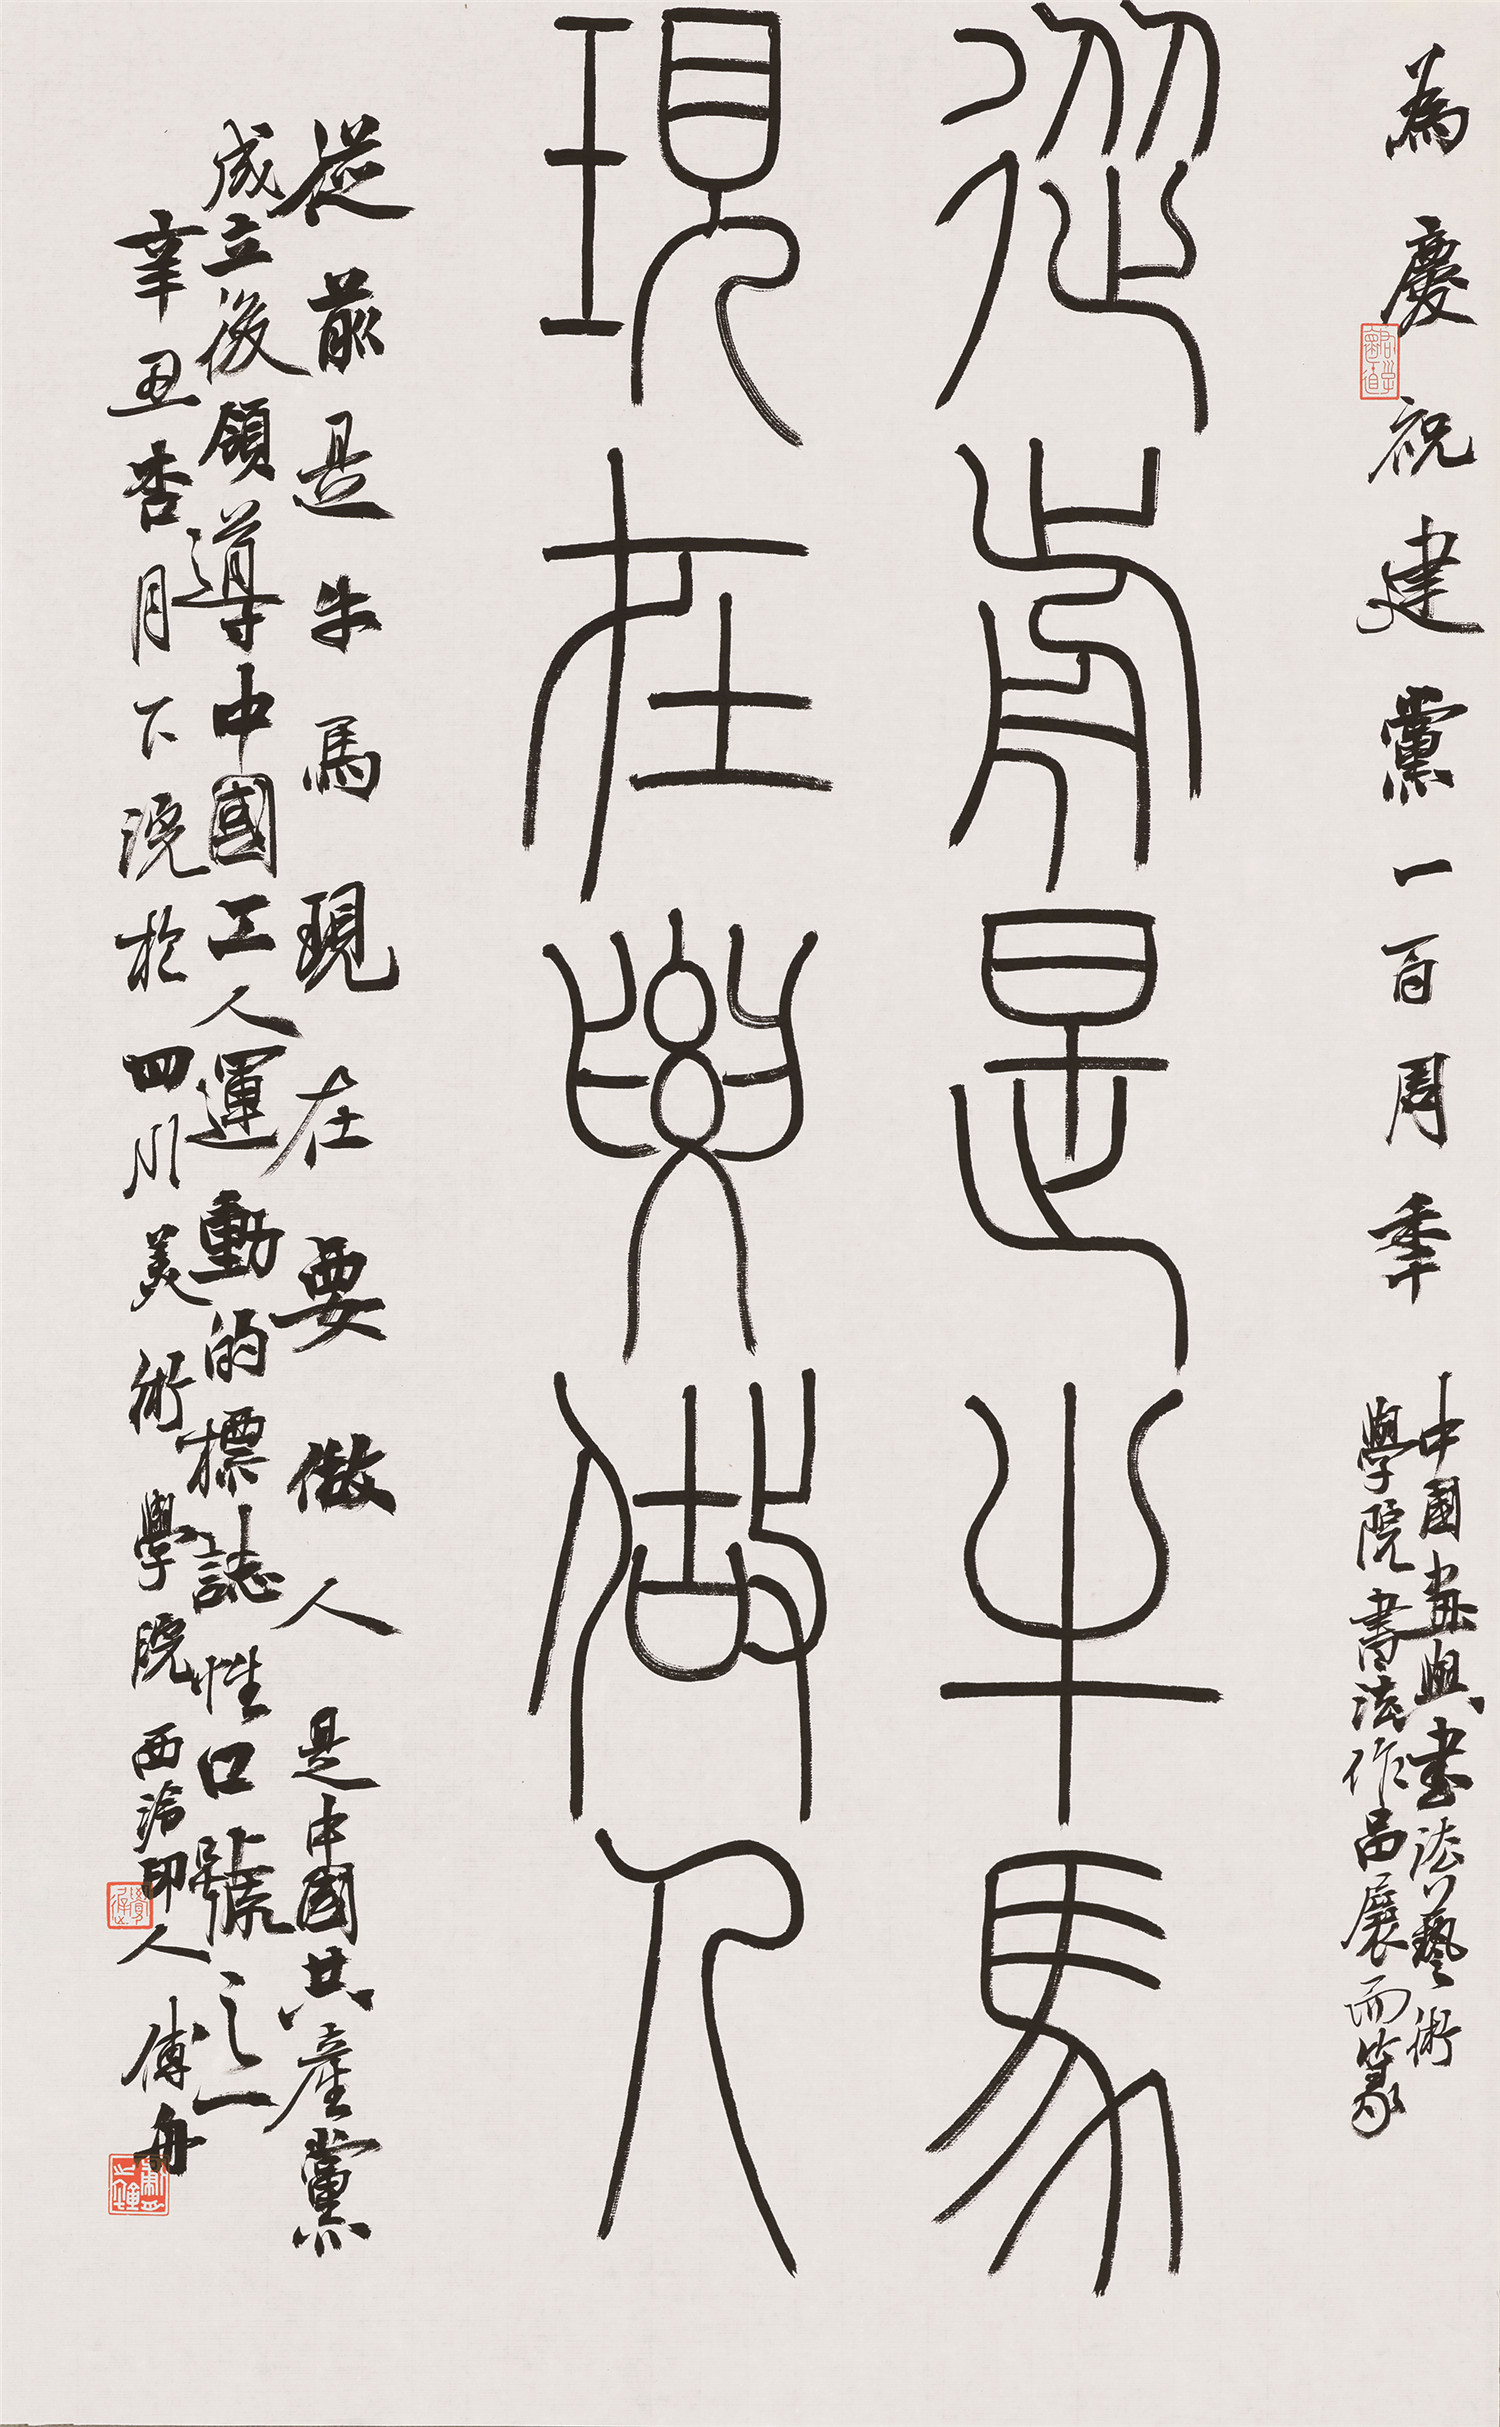 為慶祝建黨一百周年
中國畫與書法藝術
學院書法作品展而篆
從歬是牛馬
現在要做人
從前是牛馬現在要做人是中國共產黨
成立後領導中國工人運動的標誌性口號之一
辛丑杏月下浣於四川美術學院西泠印人傅舟